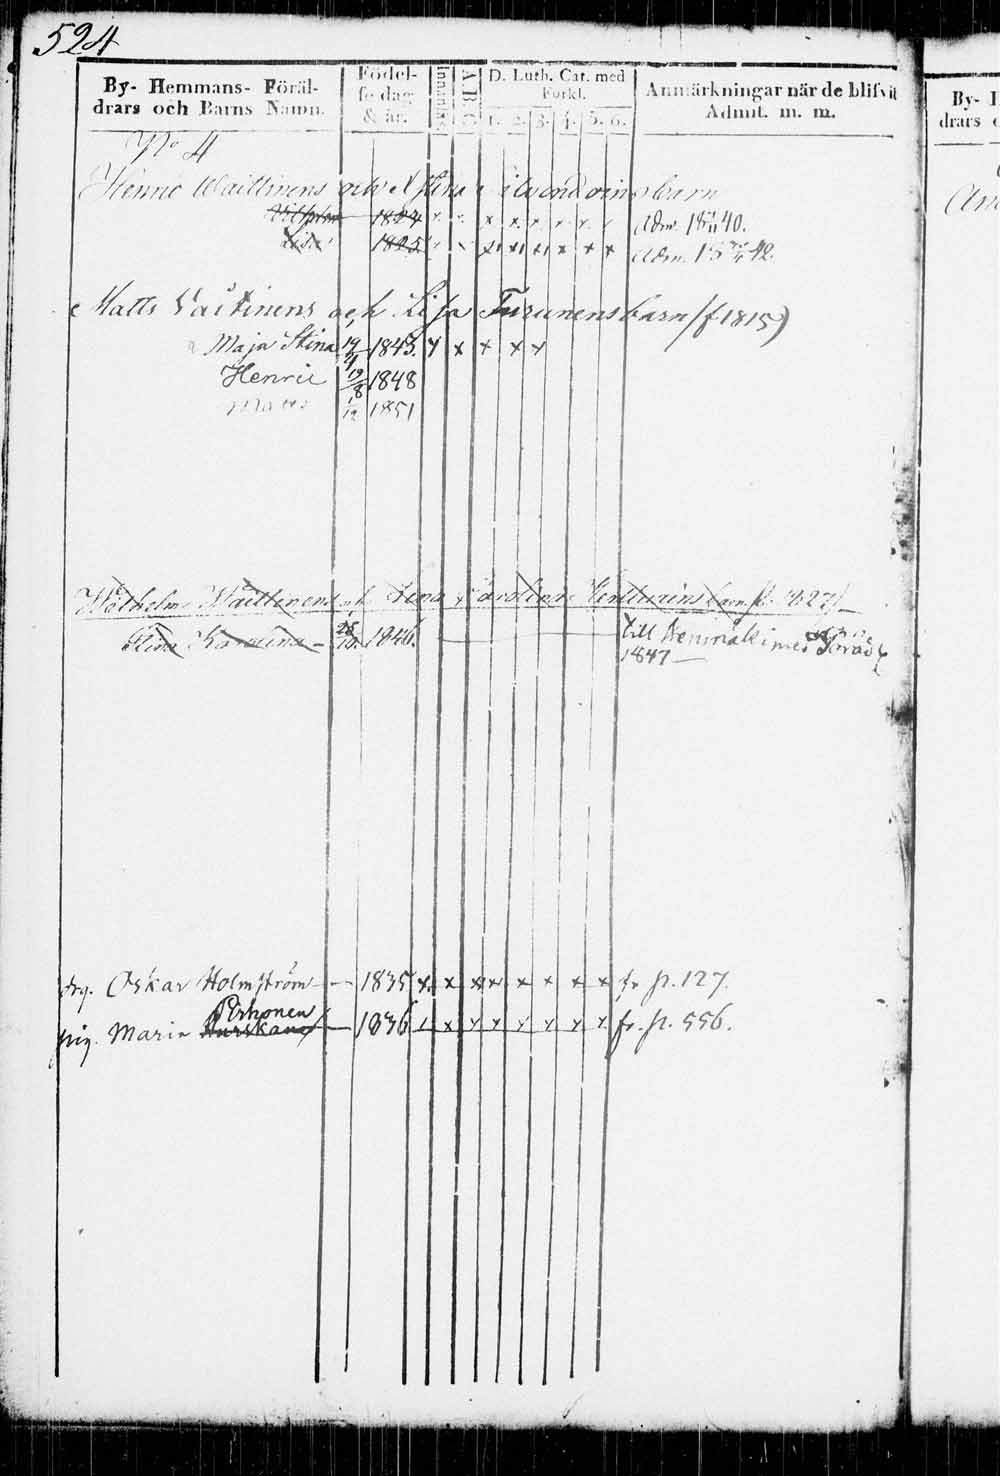 524
By- Hemmans- Föräl-
drars och Barns Namn.
Födel-
se dag
& år.
Innanläs
A B C
D. Luth. Cat. med
Förkl.
1. 2. 3. 4. 5. 6.
Anmärkningar när de blifvit
Admit. m. m.
No 4
Henric Waittinens och Stina barn
Wilhelm 1824 Adm. 18 40.
Lisa 1825 Adm. 18 42.
Matts Vaitinens och Lisa Turunens barn (f 1815)
Maja Stina 19/4 1845. x x x x x
Henric 19/8 1848
Matts 1/12 1851
Wilhelm Waittinens och Lena Carolina barn
Stina Karolina – 28/10. 1846. till
1847 —
drg. Oskar Holmström – 1835 x x x x x x x x fr p. 127.
Pirhonen
pig. Maria – 1836 x x x x x x x fr. p. 556.
By-
drars